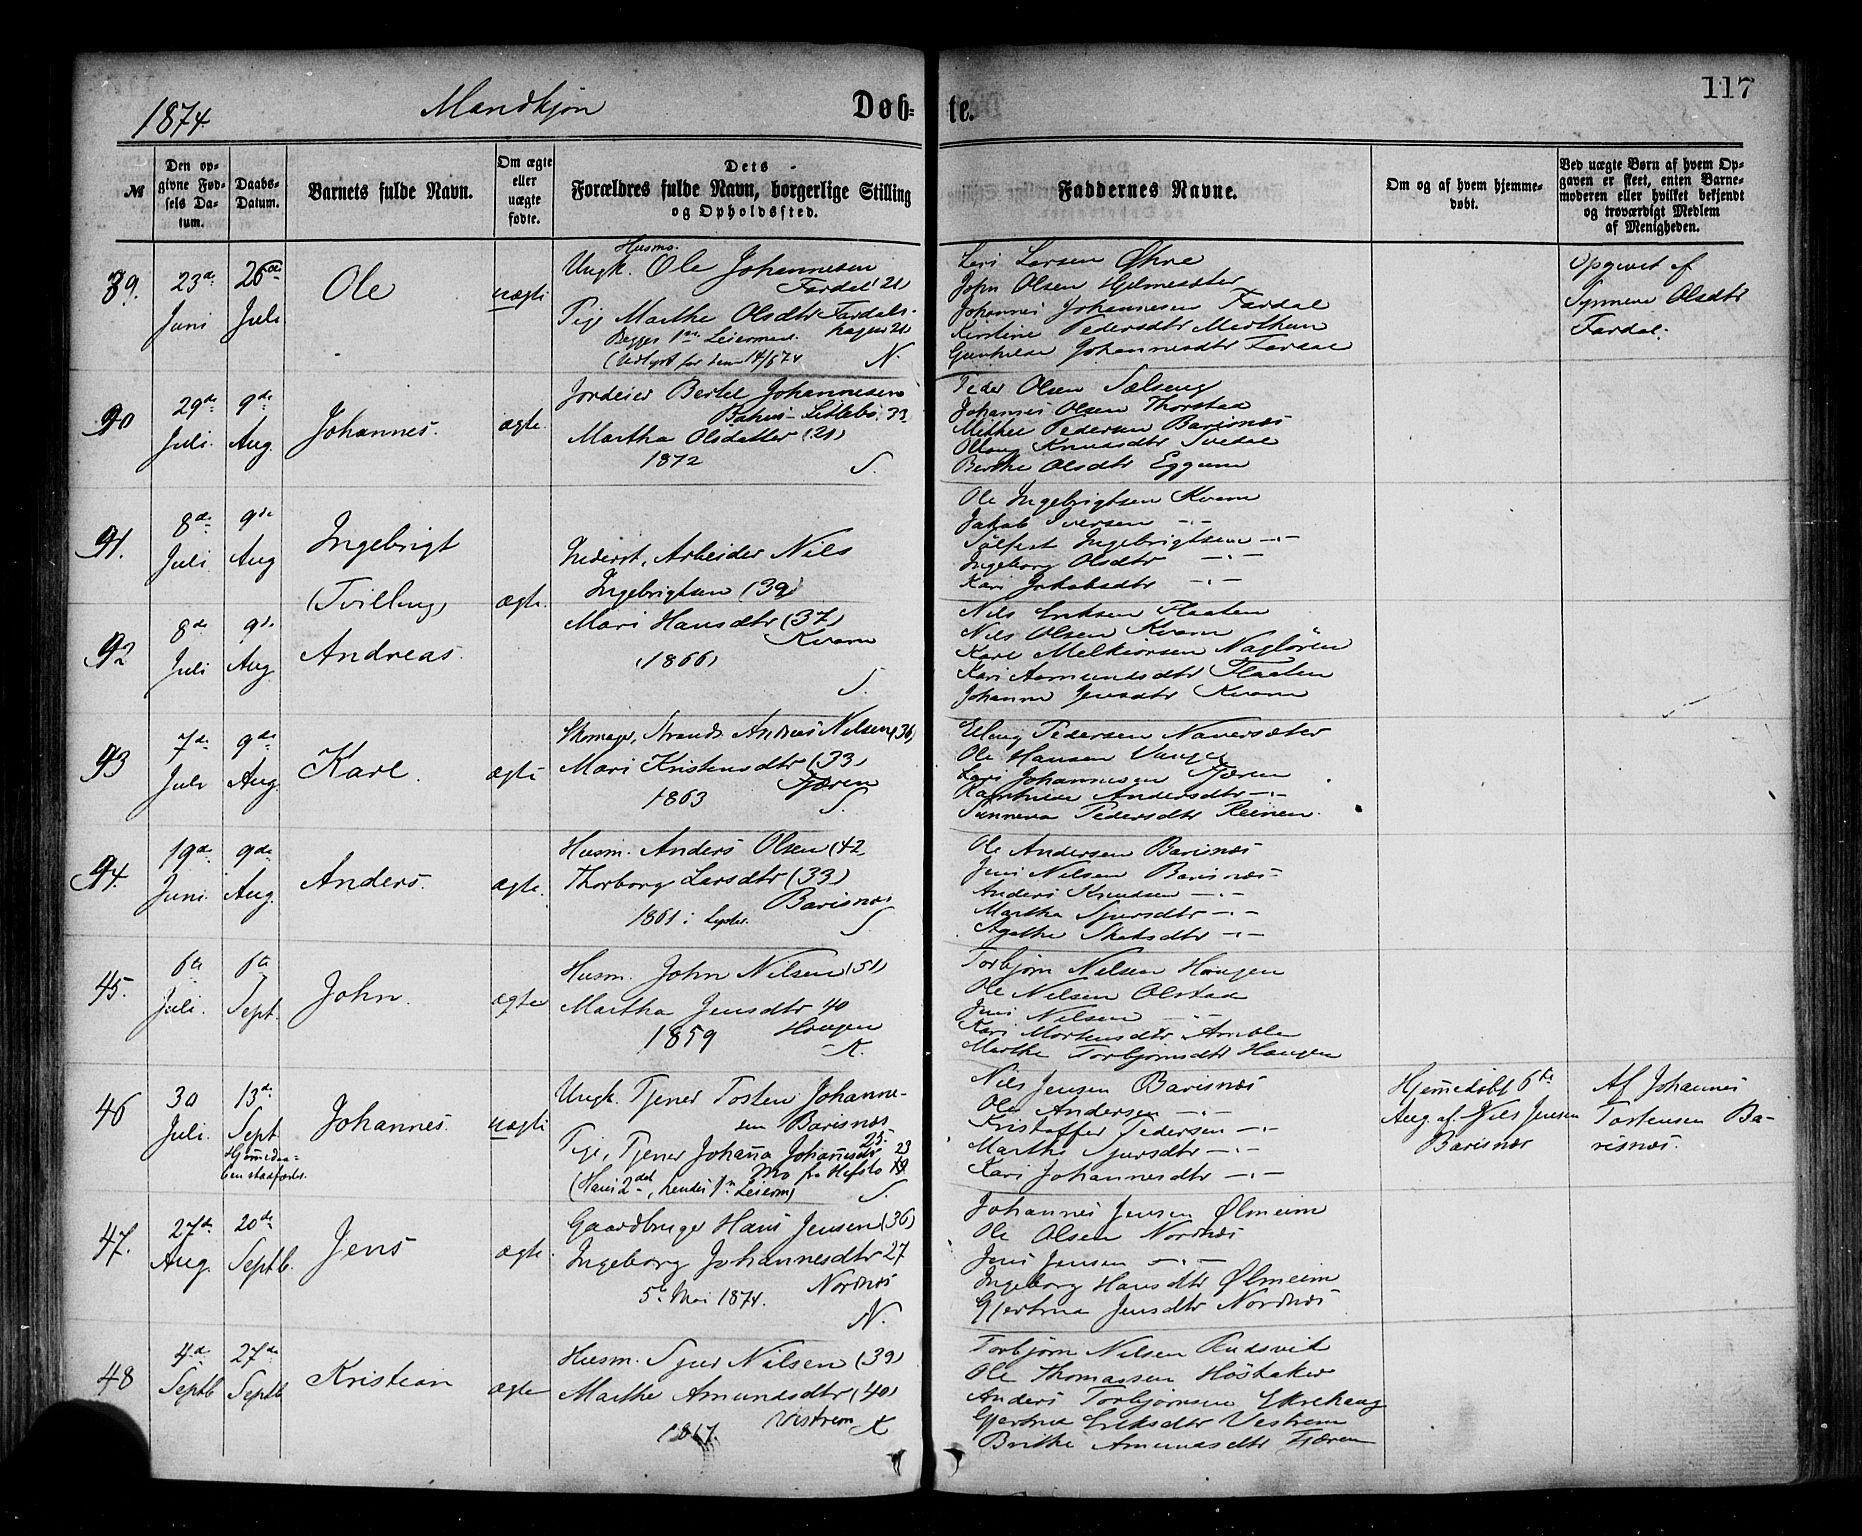 117
1874.
Mandkjøn
Døb-
te.
№
Den op-
givne Fød-
sels Da-
tum.
Daabs-
Datum.
Barnets fulde Navn.
Om ægte
eller
uægte
fødte.
Dets
Forældres fulde Navn, borgerlige Stilling
og Opholdssted.
Faddernes Navne.
Om og af hvem hjemme-
døbt.
Ved uægte Børn af hvem Op-
gaven er skeet, enten Barne-
moderen eller hvilket bekjendt
og troværdigt Medlem
af Menigheden.
39.
23de
Juni
26de
Juli
Ole
uægte
Husms.
Ungk. Ole Johannesen
Fardal 21
Pige Marthe Olsdtr Fardals-
hagen 21
Begges 1ste Leiermaal.
14/6 74
N.
Lars Larsen Øhre
John Olsen Hjelmesæter
Johannes Johannesen Fardal
Kirstine Pedersdtr Mærthun
Gunhilde Johannesdtr Fardal
Opgivet af
Synneve Olsdtr
Fardal.
40
29de
Juli.
9de
Aug.
Johannes.
ægte.
Jordeier Bertel Johannesen
Litlebø. 33
Martha Olsdatter (21)
1872
S.
Peder Olsen Sælseng
Johannes Olsen Thorstad
Mikkel Pedersen Barisnæs
Knudsdtr Svedal
Berthe Olsdtr Eggum
41.
8de
Juli
9de
Aug
Ingebrigt
(Tvilling)
ægte.
Inderst, Arbeider Nils
Ingebrigtsen (39)
Mari Hansdtr (37)
Kvam
(1866)
S.
Ole Ingebrigtsen Kvam
Jakob Iversen -"-
Sølfest Ingebrigtsen -"-
Ingeborg Olsdtr -"-
Kari Jakobsdtr -"-
42
8de
Juli
9de
Aug.
Andreas.
Nils Eriksen Flaaten
Nils Olsen Kvam
Karl Melkiorsen Nagløren
Kari Aamundsdtr Flaaten
Johanne Jensdtr Kvam
43
7de
Juli
9de
Aug
Karl.
ægte
Skomager, Strands. Andreas Nilsen (36)
Mari Kristensdtr (33)
Fjæren
1863
S.
Erling Pedersen Navarsæter
Ole Hansen Vanger
Lars Johannesen Fjæren
Ragnhilde Andersdtr -"-
Sunneva Pedersdtr Reinen.
44.
19de
Juni.
9de
Aug.
Anders.
ægte.
Husm. Anders Olsen (42
Thorborg Larsdtr (33)
Barisnæs
1861 i Lyster.
S.
Ole Andersen Barisnæs
Jens Nilsen Barisnæs.
Anders Knudsen -"-
Martha Sjursdtr -"-
Agathe -"-
45.
6te
Juli.
6te
Sept.
John.
ægte
Husm. John Nilsen (51)
Martha Jensdtr 40
1859 Haugen
K.
Torbjørn Nilsen Haugen
Ole Nilsen Olstad
Jens Nilsen -"-
Kari Mortensdtr Amble
Marthe Torbjørnsdtr Haugen
46
30
Juli.
13de
Sept
Hjemmedaa-
ben stadfæstet.
Johannes.
uægte
Ungk. Tjener Tosten Johanne-
sen Barisnæs
25.
Pige, Tjener Johanna Johannesdtr 23
Mo fra Hafslo
(Hans 2det, hendes 1ste Leierm)
S.
Nils Jensen Barisnæs
Ole Andersen -"-
Kristaffer Pedersen -"-
Marthe Sjursdtr -"-
Kari Johannesdtr -"-
Hjemmedøbt 6te
Aug. af Nils Jensen
Barisnæs
Af Johannes
Tostensen Ba-
risnæs.
47.
27de
Aug.
20de
Septb.
Jens
ægte.
Gaardbruger Hans Jensen (36)
Ingeborg Johannesdtr 27
5te Mai 1874. Nordnæs
N.
Johannes Jensen Ølmeim
Ole Olsen Nordnæs
Jens Jensen -"-
Ingeborg Hansdtr Ølmeim
Gjertrud Jensdtr Nordnæs
48
4de
Septb
27de
Septb
Kristian
ægte
Husm. Sjur Nilsen (39)
Marthe Amundsdtr (40)
Vestrem
1867.
K
Torbjørn Nilsen Rudsvik
Ole Thomassen Høstaker
Anders Torbjørnsen Ekrehaug
Gjertrud Eriksdtr Vestrem
Brithe Amundsdtr Fjæren